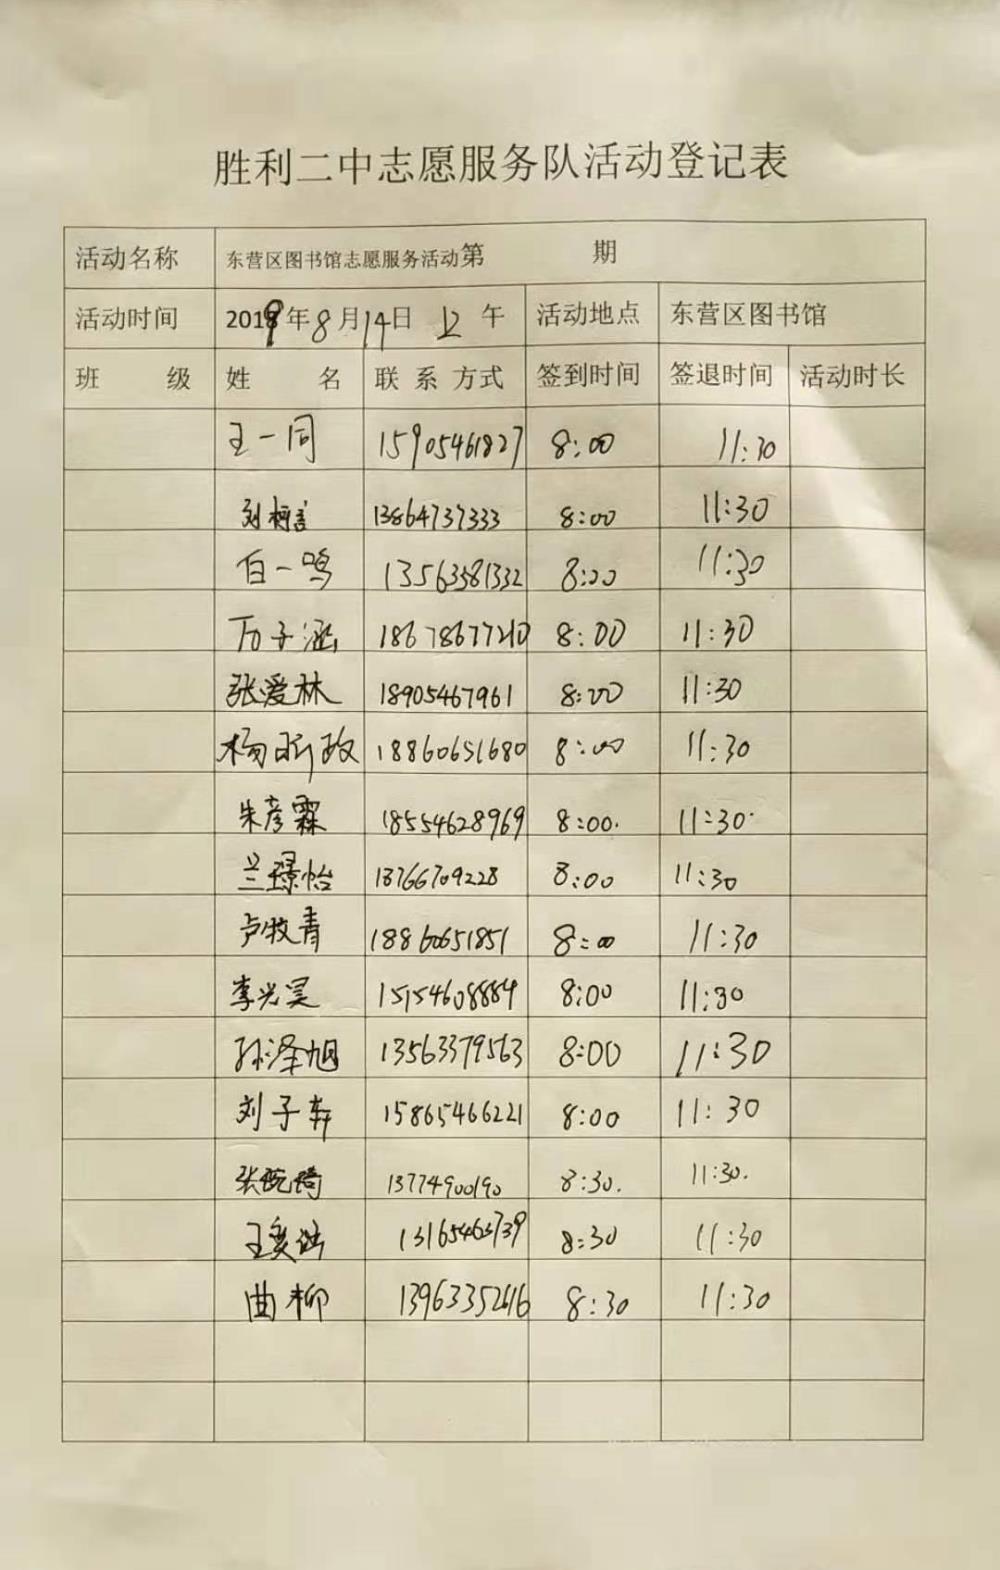 胜利二中志愿服务队活动登记表
活动名称 东营区图书馆志愿服务活动第 期
活动时间 2019年8月14日 上午 活动地点 东营区图书馆
班 级 姓 名 联系方式 签到时间 签退时间 活动时长
王一同 15905461827 8:00 11:30
刘 13864737333 8:00 11:30
白一鸣 13563581332 8:00 11:30
万子涵 18678677210 8:00 11:30
张爱林 18905467961 8:00 11:30
杨昕政 18860651680 8:00 11:30
朱彦霖 18554628969 8:00. 11:30.
兰璟怡 13766709228 8:00 11:30
卢牧青 18860651851 8:00 11:30
李光昊 15154608884 8:00 11:30
孙泽旭 13563379563 8:00 11:30
刘子轩 15865466221 8:00 11:30
张琦 13774900190 8:30. 11:30.
王奕涵 13165463739 8:30 11:30
曲柳 13963352616 8:30 11:30